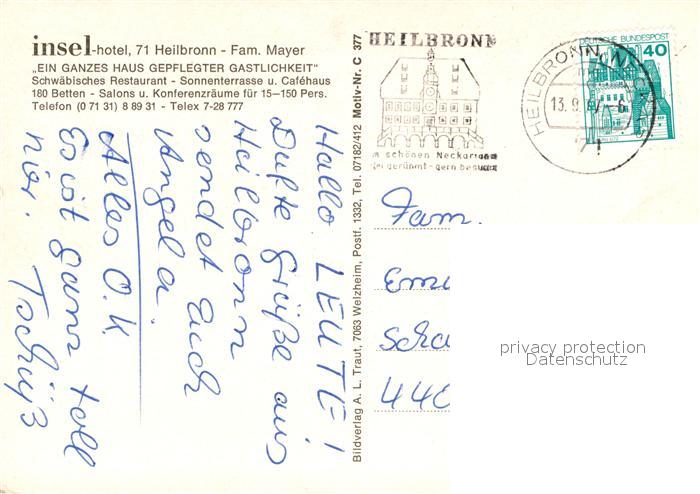 insel-hotel, 71 Heilbronn - Fam. Mayer
„EIN GANZES HAUS GEPFLEGTER GASTLICHKEIT"
Schwäbisches Restaurant - Sonnenterrasse u. Caféhaus
180 Betten - Salons u. Konferenzräume für 15–150 Pers.
Telefon (0 71 31) 8 89 31 - Telex 7-28 777
Hallo LEUTE!
Dufte Grüße aus
Heilbronn
sendet Euch
Angela.
Alles O.K.
Es ist ganz toll
hier.
Tschüß
Bildverlag A. L. Traut, 7063 Welzheim, Postf. 1332, Tel. 07182/412 Motiv-Nr. C 377
HEILBRONN
m schönen Neckarland
gerühmt - gern besucht
HEILBRONN
13.9.
71
DEUTSCHE BUNDESPOST
40
Fam.
Emi
Scha
440
privacy protection
Datenschutz